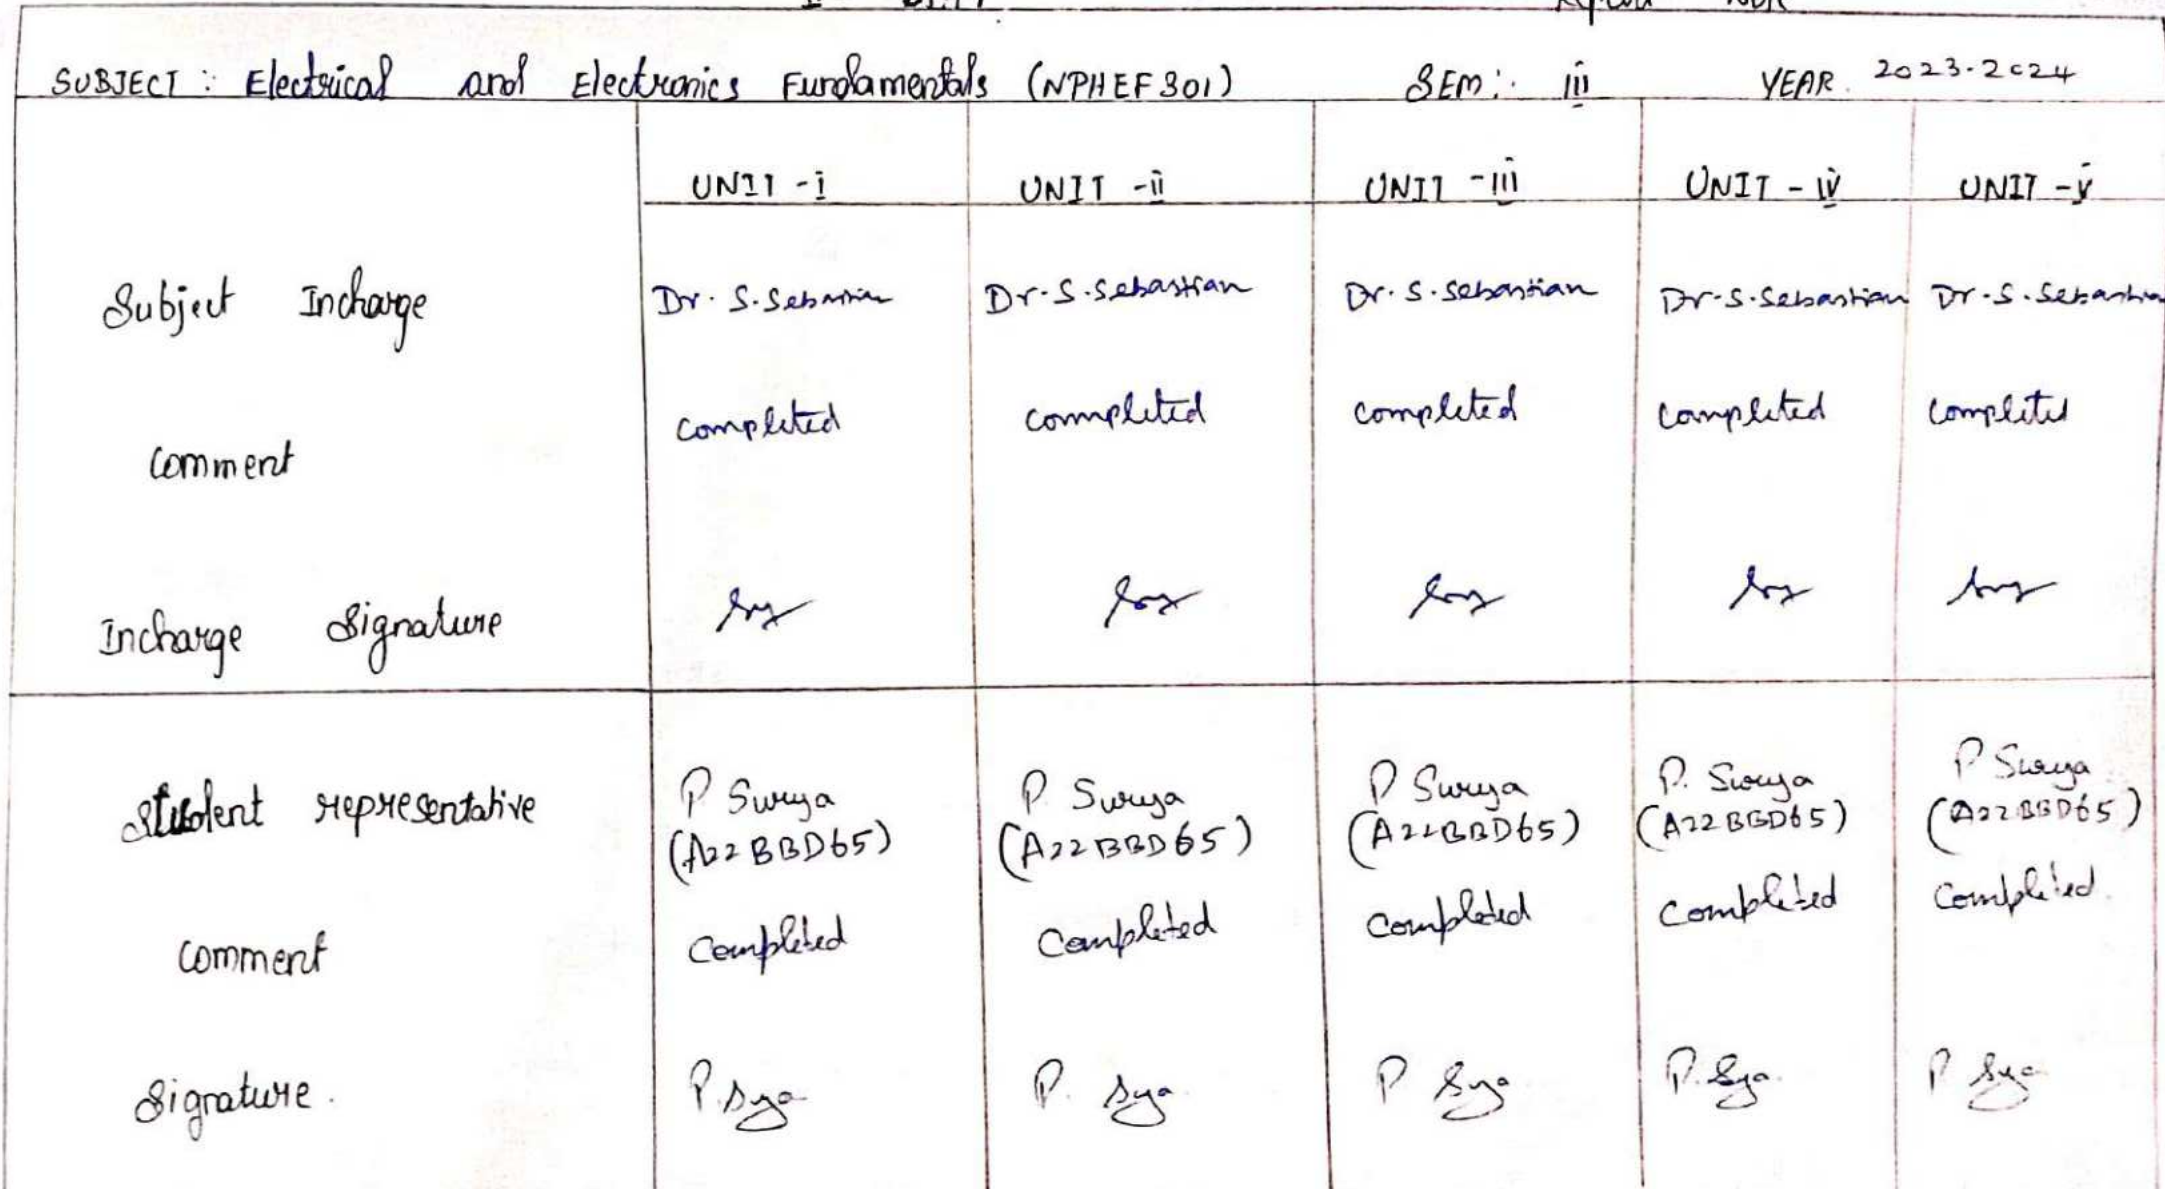 SUBJECT : Electrical and Electronics Fundamentals (NPHEF301) SEM : III YEAR. 2023-2024
UNIT - I UNIT - II UNIT - III UNIT - IV UNIT - V
Subject Incharge Dr. S. Sebastian Dr. S. Sebastian Dr. S. Sebastian Dr. S. Sebastian Dr. S. Sebastian
Comment Completed Completed Completed Completed Completed
Incharge Signature
Student representative P Surya P. Surya P Surya P. Surya P Surya
(A22BBD65) (A22BBD65) (A22BBD65) (A22BBD65) (A22BBD65)
Comment Completed Completed Completed Completed Completed.
Signature. P. Sya P. Sya P Sya P. Sya P Sya